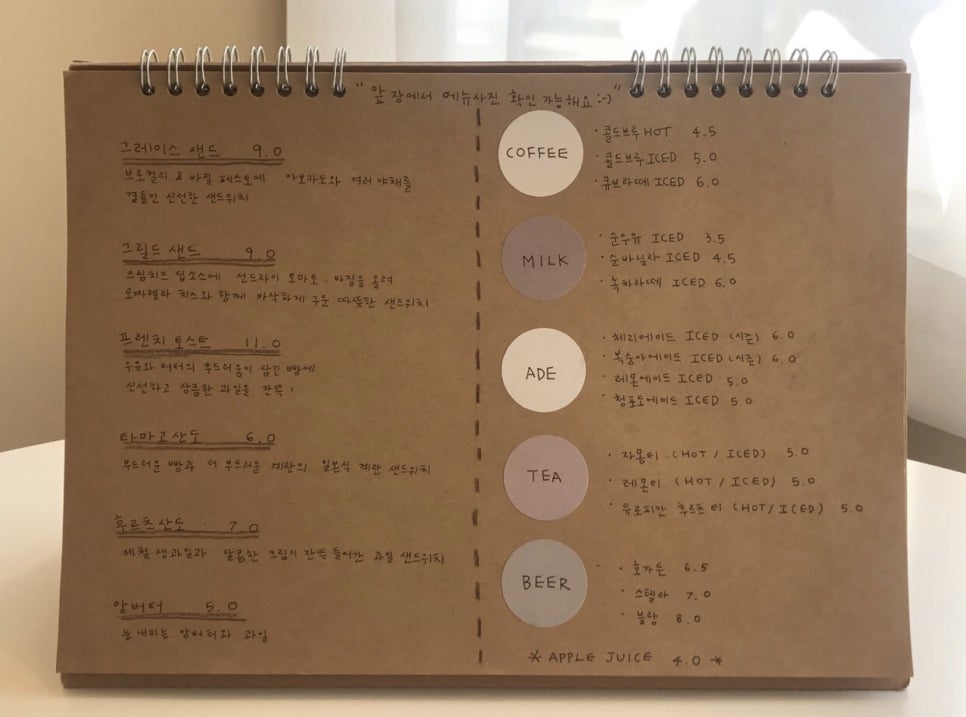 "앞 장에서 메뉴사진 확인 가능해요:-)"
그레이스 샌드 9.0
브로컬리 & 바질 페스토에 아보카도와 여러 야채를
곁들인 신선한 샌드위치
그릴드 샌드 9.0
크림치즈 딥소스에 선드라이 토마토, 바질을 올려
모짜렐라 치즈와 함께 바삭하게 구운 따뜻한 샌드위치
프렌치 토스트 11.0
우유와 버터의 부드러움이 담긴 빵에
신선하고 상큼한 과일을 잔뜩!
타마고산도 6.0
부드러운 빵과 더 부드러운 계란의 일본식 계란 샌드위치
후르츠산도 7.0
제철 생과일과 달콤한 크림이 잔뜩 들어간 과일 샌드위치
앙버터 5.0
눈내리는 앙버터와 과일
COFFEE
· 콜드브루 HOT 4.5
· 콜드브루 ICED 5.0
· 큐브라떼 ICED 6.0
MILK
· 순우유 ICED 3.5
· 순바닐라 ICED 4.5
· 녹차라떼 ICED 6.0
ADE
· 체리에이드 ICED (시즌) 6.0
· 복숭아에이드 ICED (시즌) 6.0
· 레몬에이드 ICED 5.0
· 청포도에이드 ICED 5.0
TEA
· 자몽티 (HOT / ICED) 5.0
· 레몬티 (HOT / ICED) 5.0
· 유로피안 후르츠 티 (HOT / ICED) 5.0
BEER
· 호가든 6.5
· 스텔라 7.0
· 블랑 8.0
* APPLE JUICE 4.0 *